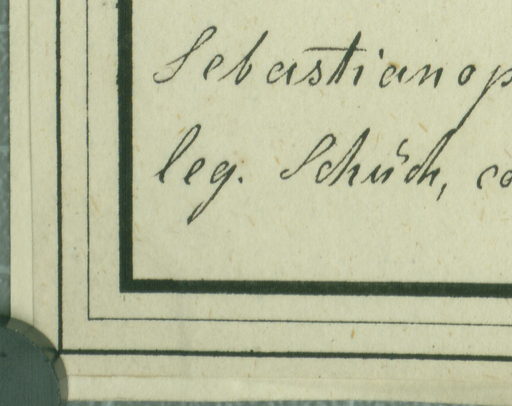 Sebastianop
leg. Schüch, co